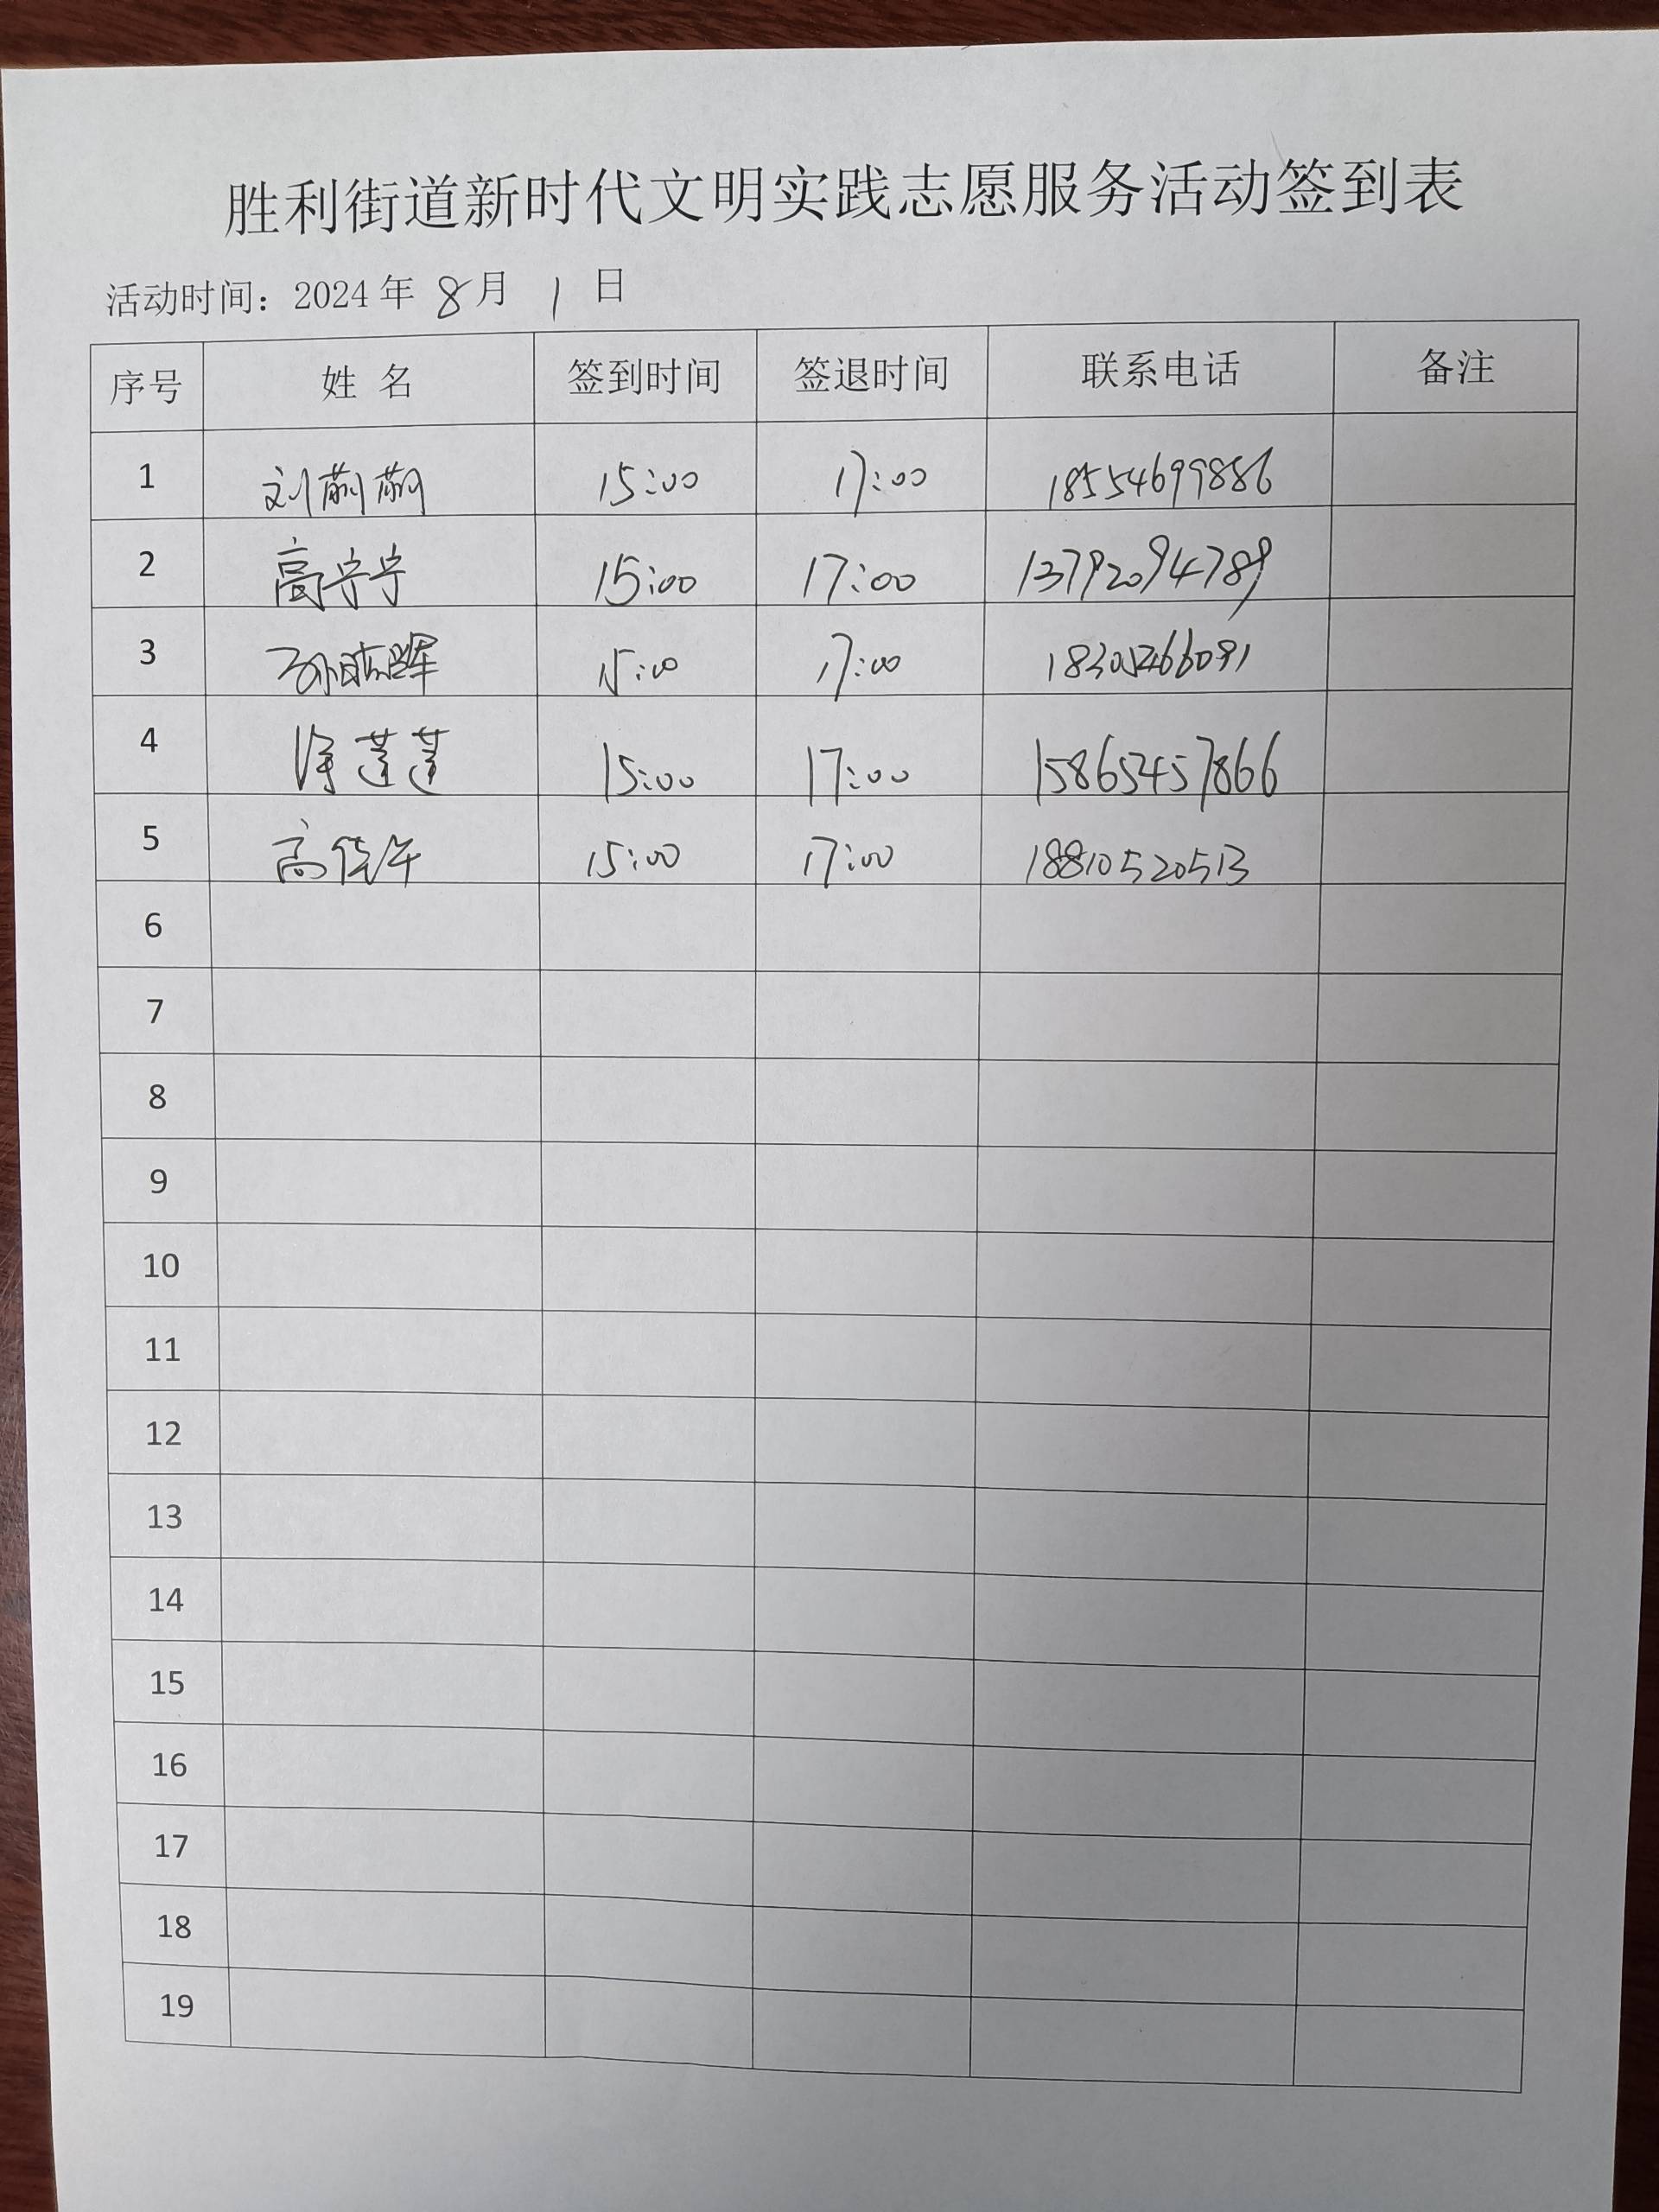 胜利街道新时代文明实践志愿服务活动签到表
活动时间：2024年 8月 1 日
序号 姓 名 签到时间 签退时间 联系电话 备注
1 刘蒯蒯 15:00 17:00 18554699886
2 高宁宁 15:00 17:00 13792094789
3 孙晓晖 15:00 17:00 18305466091
4 徐莲莲 15:00 17:00 15865457866
5 高 15:00 17:00 18810520513
6
7
8
9
10
11
12
13
14
15
16
17
18
19